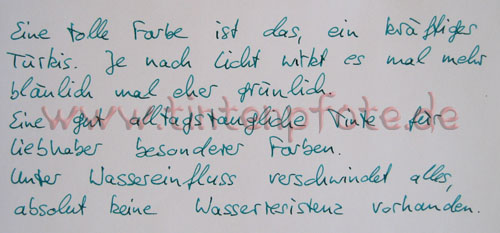 Eine tolle Farbe ist das, ein kräftiger
Türkis. Je nach Licht wirkt es mal mehr
bläulich mal eher grünlich.
www.tintenpfote.de
Eine gut alltagstaugliche Tinte für
Liebhaber besonderer Farben.
Unter Wassereinfluss verschwindet alles,
absolut keine Wasserresistenz vorhanden.